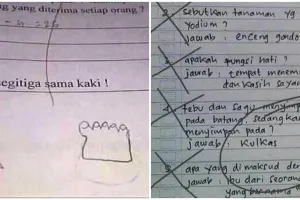 yang diterima setiap orang ?
segitiga sama kaki !
2. sebutkan tanaman yg
yodium ?
jawab : enceng gondo
3. apakah fungsi hati ?
jawab : tempat menem
dan kasih saya
4. tebu dan sagu menyimp
pada batang, sedangkan
menyimpan pada ?
jawab : kulkas
5. apa yang di maksud de
jawab : ibu dari seoran
yang